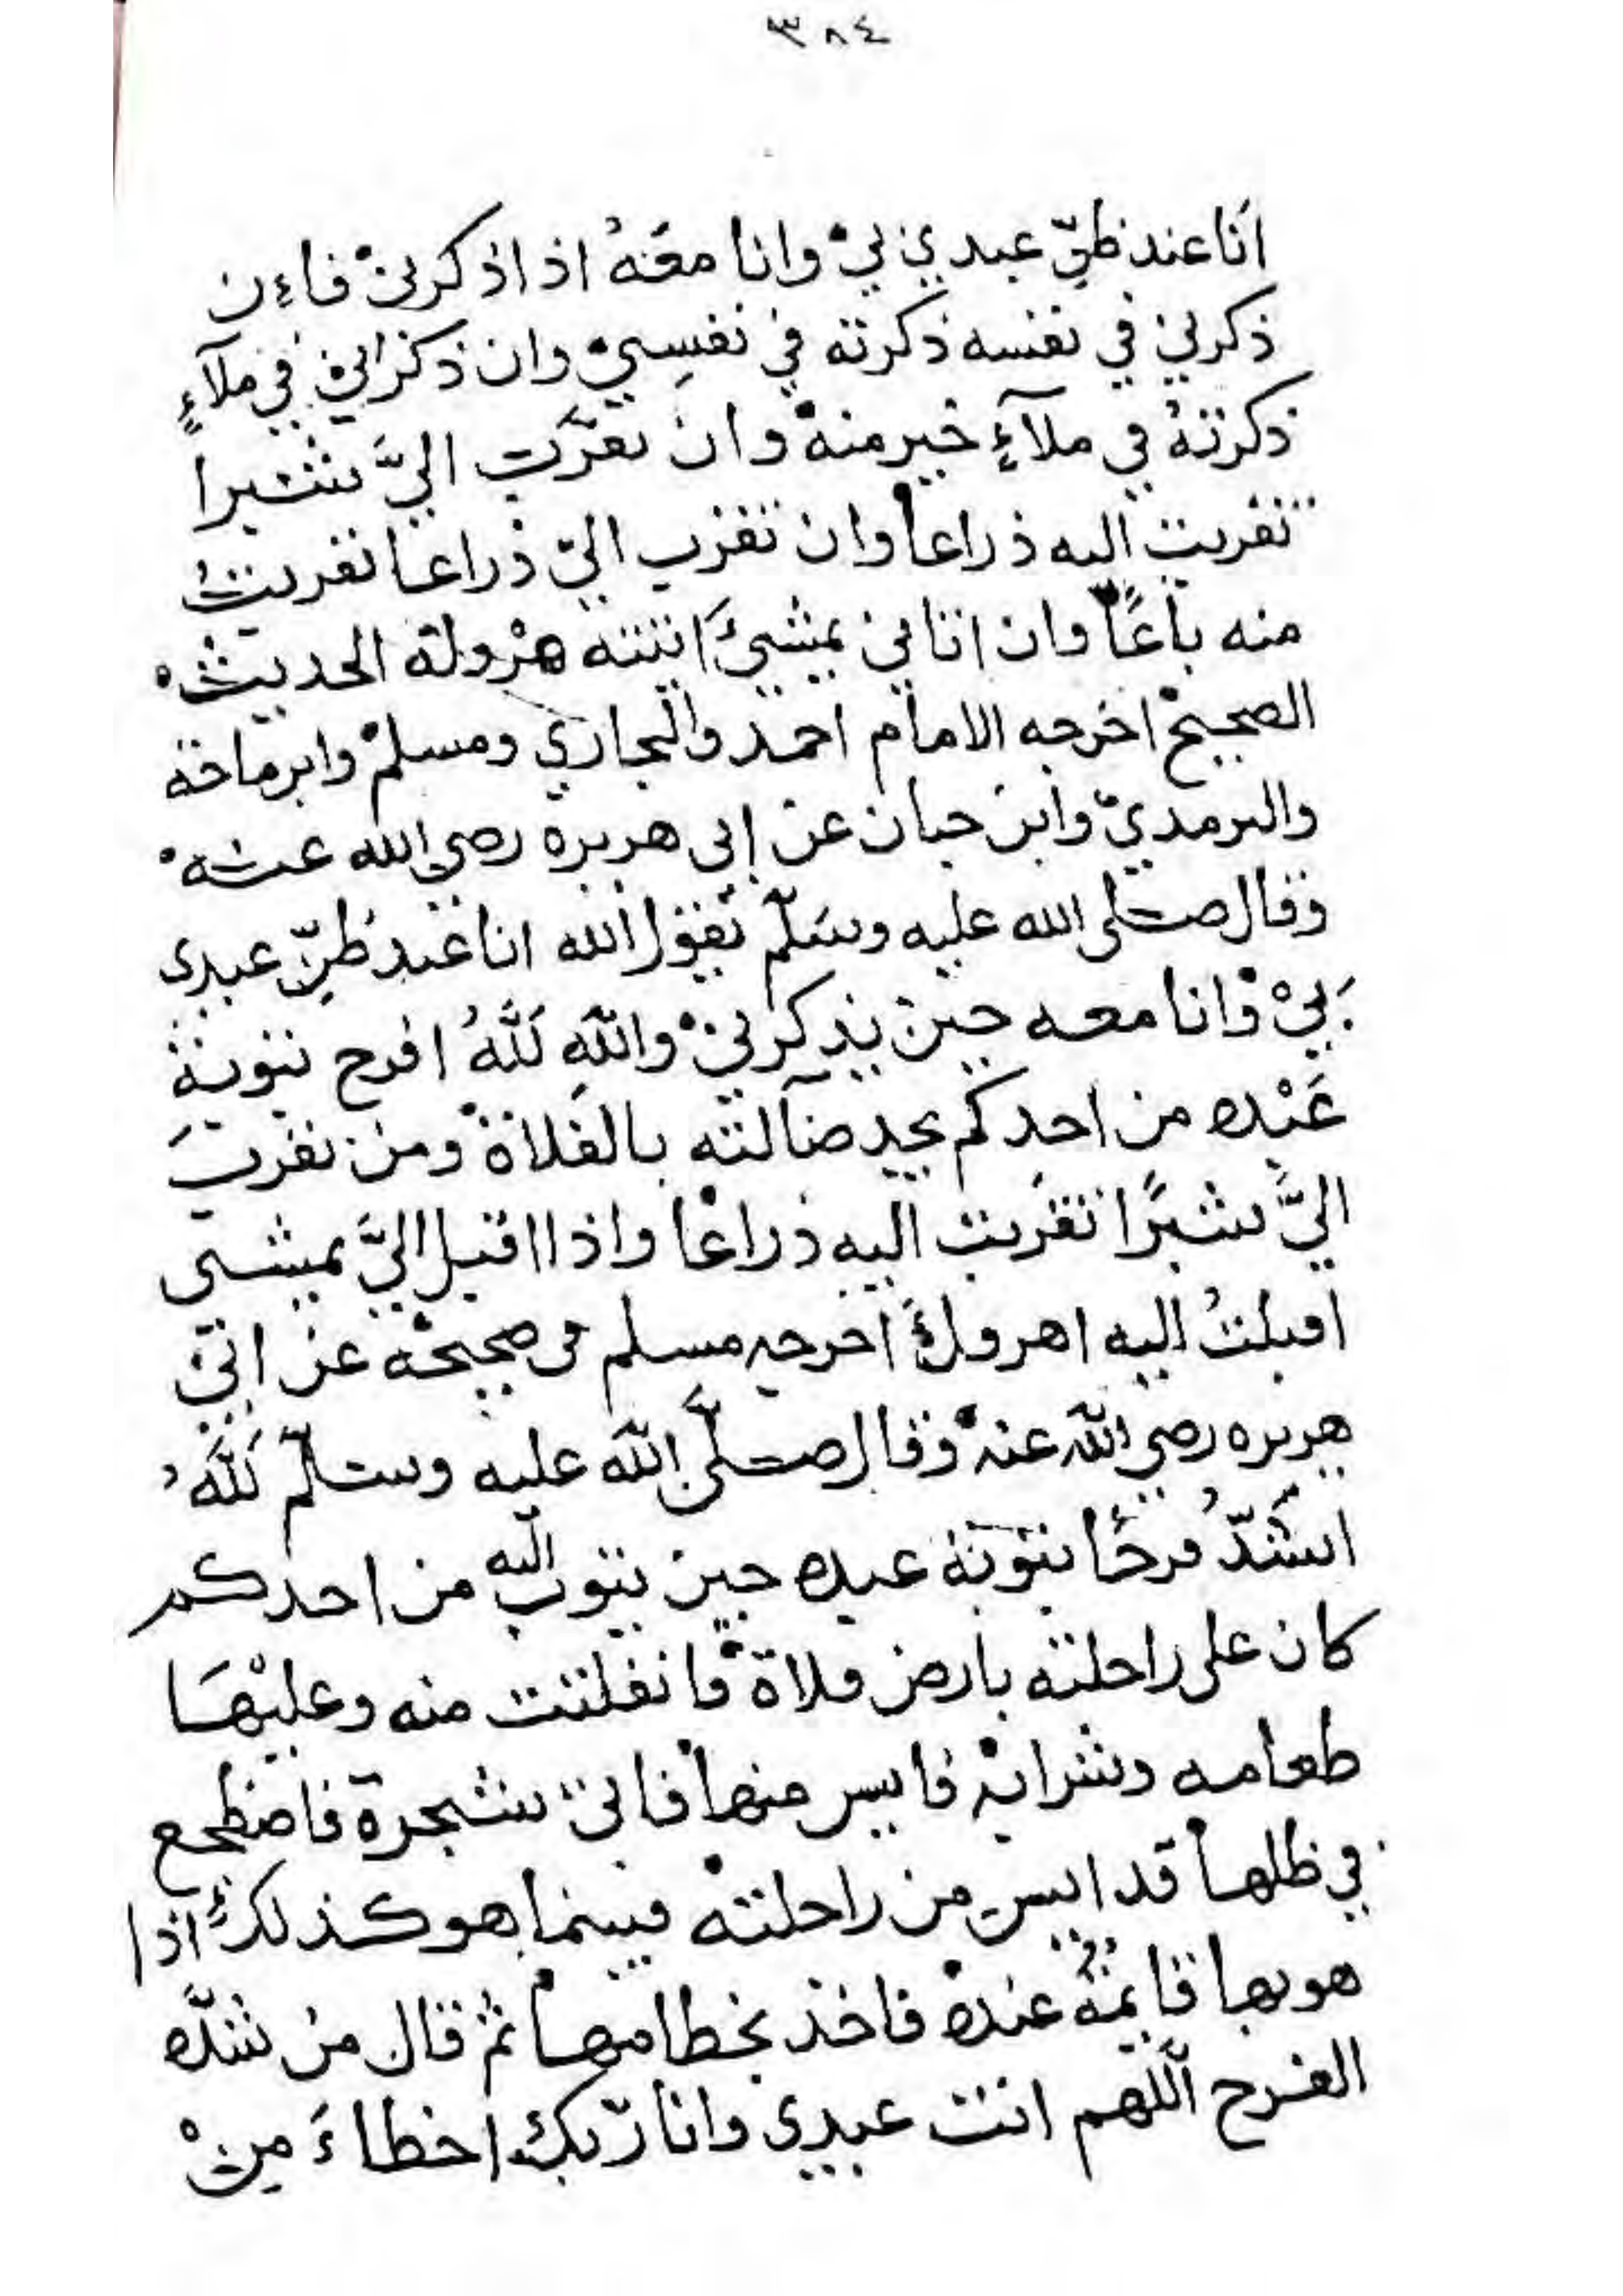 ٣٨٤
انا عند ظنّ عبدي بي وانا معه اذا ذكرني فاءن
ذكرني في نفسه ذكرته في نفسي وان ذكرني في ملآءٍ
ذكرته في ملآءٍ خير منه وان تقرّب اليَّ شبرا
تقربت اليه ذراعا وان تقرب اليّ ذراعا تقربتُ
منه باعًا وان اتاني بمشي اتيته هرولة الحديث
الصحيح اخرجه الامام احمد والبخاري ومسلم وابن ماجة
والترمديّ وابن حبان عن ابى هريرة رضي الله عنه
وقال صلى الله عليه وسلّم يقول الله انا عند ظنّ عبدى
بيْ وانا معه حين يذكرنيْ واللهِ لَلّهُ افرح بتوبة
عَبْده من احدكم يجد ضآلته بالفلاة ومن تقرب
اليَّ شبرًا تقربت اليه ذراعًا واذا اقبل اليَّ يمشى
اقبلتُ اليه اهرول اخرجه مسلم فى صحيحه عن ابيْ
هريره رضي الله عنه وقال صلى الله عليه وسلّم لَلّهُ
اشدُّ فرحًا بتوبة عبده حين يتوب اليه من احدكم
كان على راحلته بارض فلاة فانفلتت منه وعليْهَا
طعامه وشرابه فايس منها فاتى شجرة فاضطجع
في ظلها قد ايس من راحلته فبينما هو كذلك اذا
هو بها قايمة عنده فاخذ بخطامها ثم قال من شدّه
الفرح اللهم انت عبدى وانا ربّك اخطاءَ مِنْ